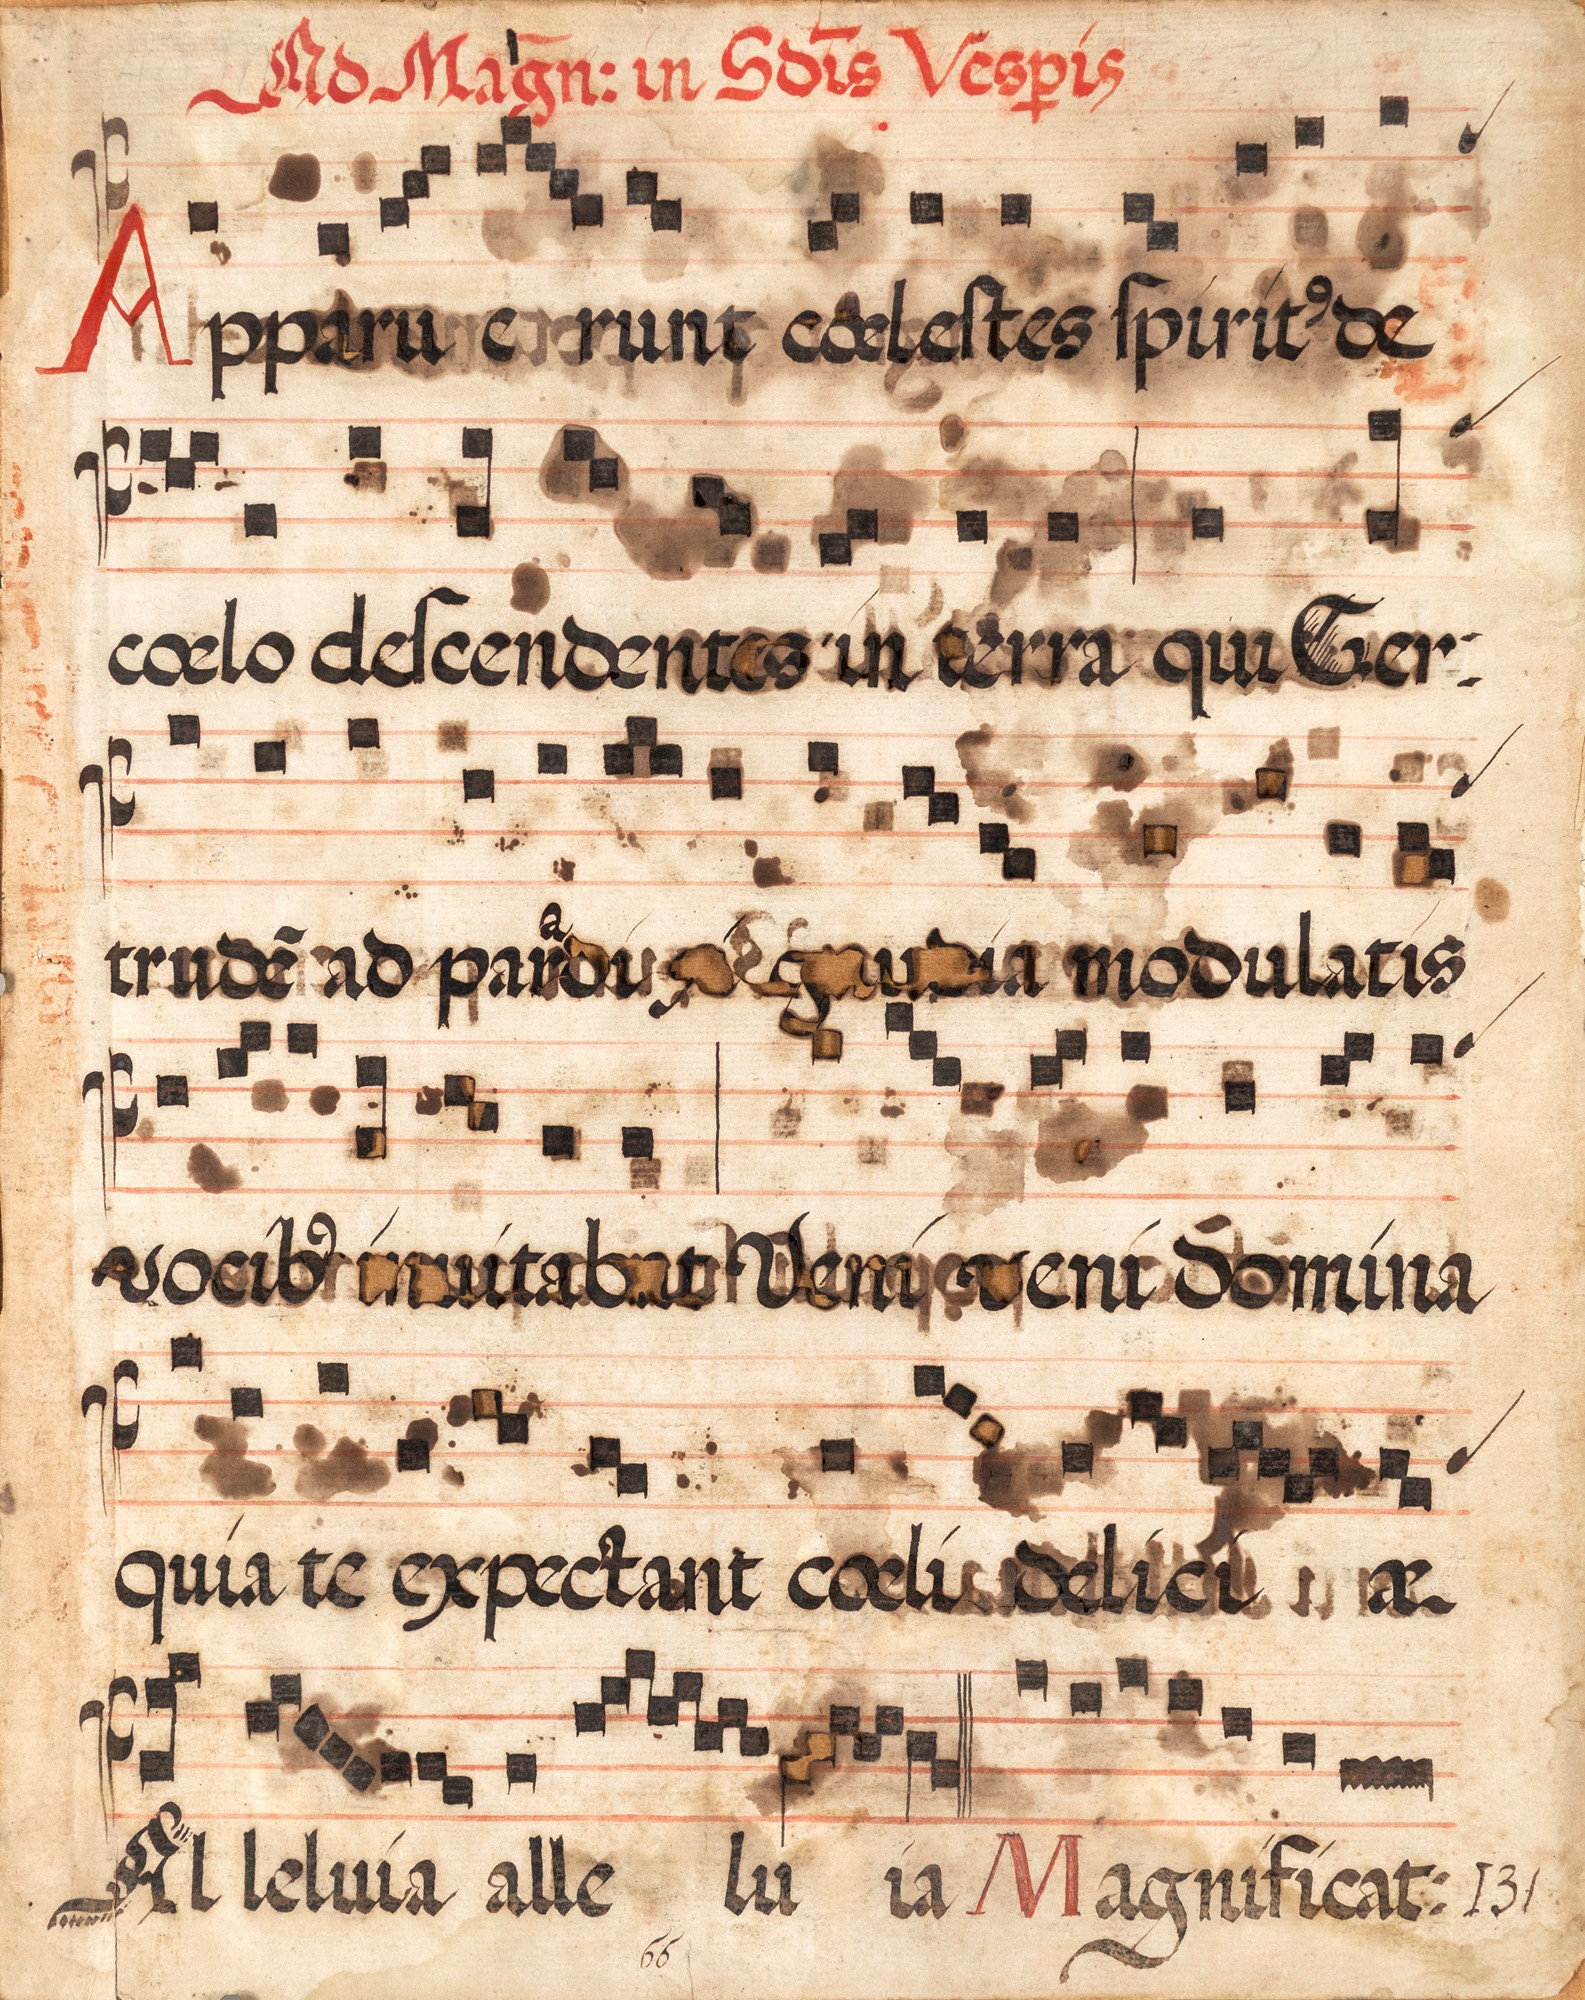 Ad Magn̄: in Sdīs Vesp̄is
Apparu e runt cœlestes spiritꝰ de
cœlo descendentes in terra qui Ger-
trudē ad parᵃdisi gaudia modulatis
vocibꝰ inuitabāt Veni veni Domina
quia te expectant cœli delici æ
Al leluia alle lu ia Magnificat: 131
66